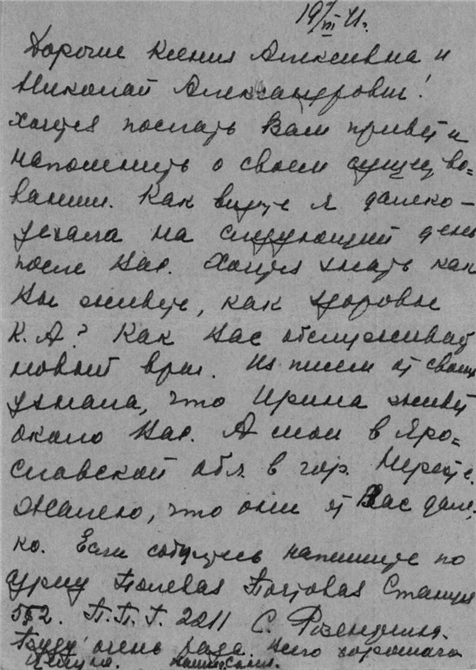 19/VII 41.
Дорогие Ксения Алексеевна и
Николай Александрович!
Хочется послать Вам привет и
напомнить о своем существо=
вании. Как видите я далеко –
уехала на следующий день
после Вас. Хочется знать как
Вы живете, как здоровье
К. А? Как Вас обслуживает
новый врач. Из писем от своих
узнала, что Ирина живет
около Вас. А мои в Яро=
славской обл. в гор. Нерехте.
Жалею, что они от Вас дале=
ко. Если соберетесь напишите по
адресу Полевая Почтовая Станция
552. П.П.Г. 2011 С. Розенцвит.
Буду очень рада. Всего хорошего